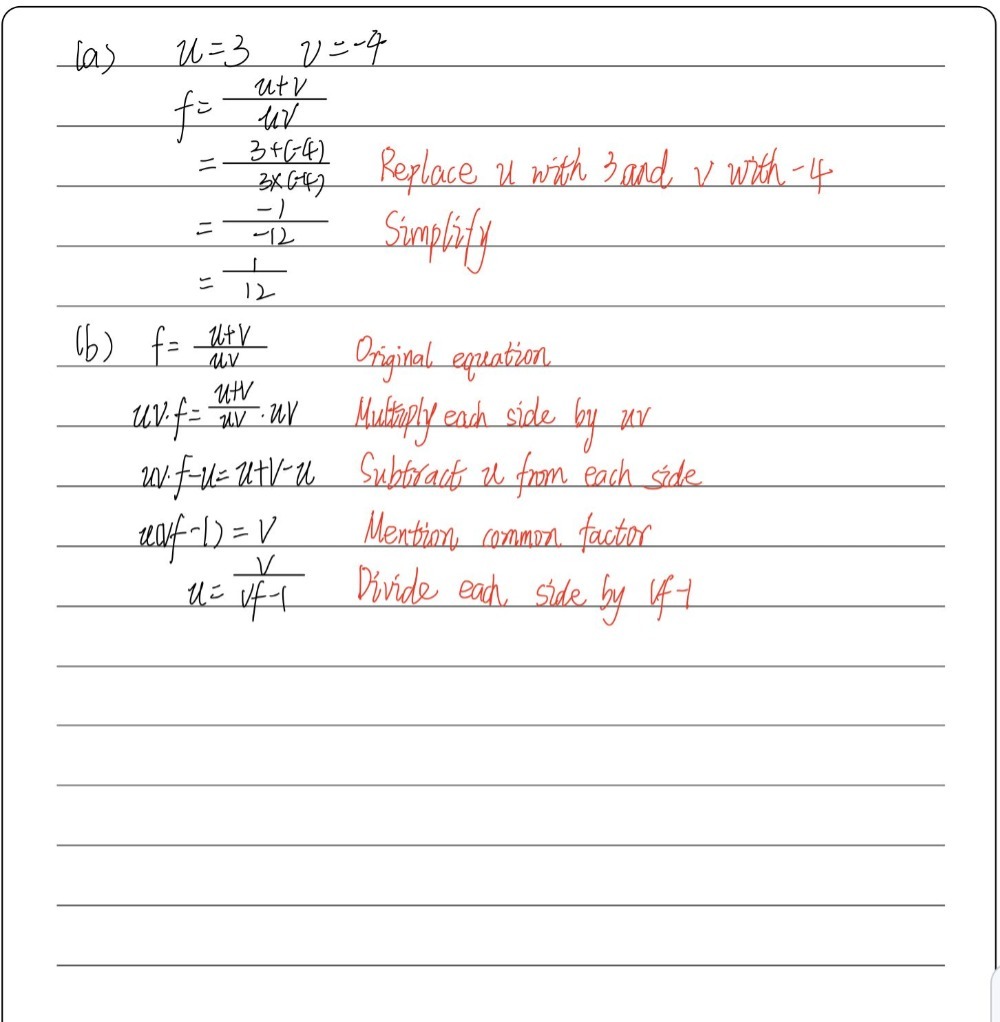 (a) u=3 v=-4
f= \frac{u+v}{uv}
= \frac{3+(-4)}{3×(-4)} Replace u with 3 and v with -4
= \frac{-1}{-12} Simplify
= \frac{1}{12}
(b) f= \frac{u+v}{uv} Original equation
uv·f= \frac{u+v}{uv}·uv Multiply each side by uv
uv·f-u=u+v-u Subtract u from each side
u(vf-1)=v Mention common factor
u= \frac{v}{vf-1} Divide each side by vf-1